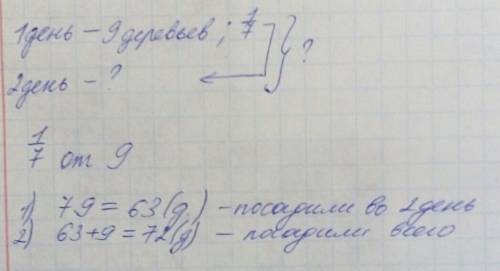 1день – 9 деревьев; 1/7 } ?
2день – ?
1/7 от 9
1) 7 9 = 63 (д.) – посадили во 2день
2) 63+9 = 72 (д) – посадили всего